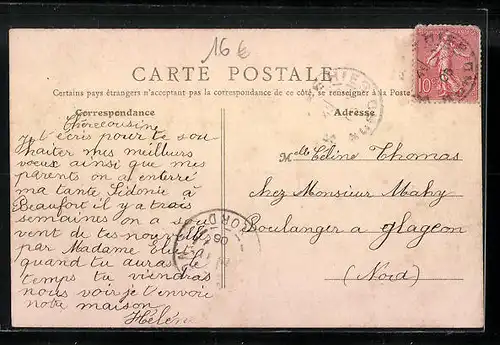 16 €
CARTE POSTALE
Certains pays étrangers n'acceptant pas la correspondance de ce côté, se renseigner à la Poste
Correspondance
Adresse
Chère cousine
je t'écris pour te sou
haiter mes meilleurs
voeux ainsi que mes
parents on a enterré
ma tante Sidonie à
Beaufort il y a trois
semaines on a sou
vent de tes nouvelles
par Madame
quand tu auras le
temps tu viendras
nous voir je t'envoie
notre maison
Hélène
Melle Céline Thomas
chez Monsieur Mahy
Boulanger a glageon
(Nord)
10
NORD